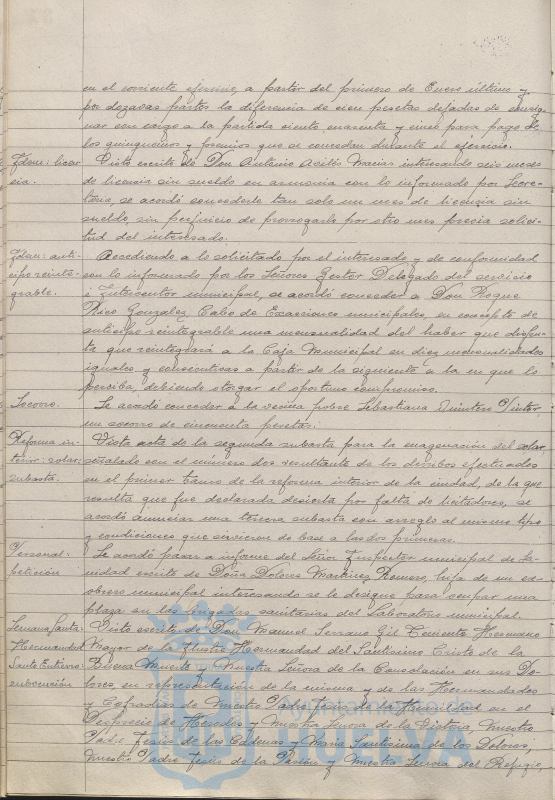 en el corriente ejercicio, a partir del primero de Enero último y
por dozavas partes la diferencia de cien pesetas dejadas de consig-
nar con cargo a la partida ciento cuarenta y cinco para pago de
los quinquenios y premios que se concedan durante el ejercicio.
Idem: licen-
cia.
Visto escrito de Don Antonio Avilés Macias interesando seis meses
de licencia sin sueldo en armonia con lo informado por Secre-
taria, se acordó concederle tan solo un mes de licencia sin
sueldo sin perjuicio de prorrogarlo por otro mes previa solici-
tud del interesado.
Idem: anti-
cipo reinte-
grable.
Accediendo a lo solicitado por el interesado y de conformidad
con lo informado por los Señores Gestor Delegado del servicio
e Interventor municipal, se acordó conceder a Don Roque
Rico Gonzalez, Cabo de Exacciones municipales, en concepto de
anticipo reintegrable una mensualidad del haber que disfru-
ta que reintegrará a la Caja Municipal en diez mensualidades
iguales y consecutivas a partir de la siguiente a la en que lo
perciba, debiendo otorgar el oportuno compromiso.
Socorro.
Se acordó conceder a la vecina pobre Sebastiana Quintero
un socorro de cincuenta pesetas.
Reforma in-
terior: solar:
subasta.
Vista acta de la segunda subasta para la enagenación del solar
señalado con el número dos resultante de los derribos efectuados
en el primer tramo de la reforma interior de la ciudad, de la que
resulta que fue declarada desierta por falta de licitadores, se
acordó anunciar una tercera subasta con arreglo al mismo tipo
y condiciones que sirvieron de base a las dos primeras.
Personal:
petición
Se acordó pasar a informe del Señor Inspector municipal de Sa-
nidad escrito de Doña Dolores Martinez Romero, hija de un ex-
obrero municipal interesando se le designe para ocupar una
plaza en las brigadas sanitarias del Laboratorio municipal.
Semana Santa:
Hermandad
Santo Entierro:
subvención
Visto escrito de Don Manuel Serrano Gil Teniente Hermano
Mayor de la Ilustre Hermandad del Santisimo Cristo de la
Buena Muerte y Nuestra Señora de la Consolación en sus Do-
lores, en representación de la misma y de las Hermandades
y Cofradias de Nuestro Padre Jesús de la Humildad en el
Desprecio de Herodes y Nuestra Señora de la Victoria, Nuestro
Padre Jesús de las Cadenas y Maria Santisima de los Dolores,
Nuestro Padre Jesús de la Pasión y Nuestra Señora del Refugio,
HUELVA